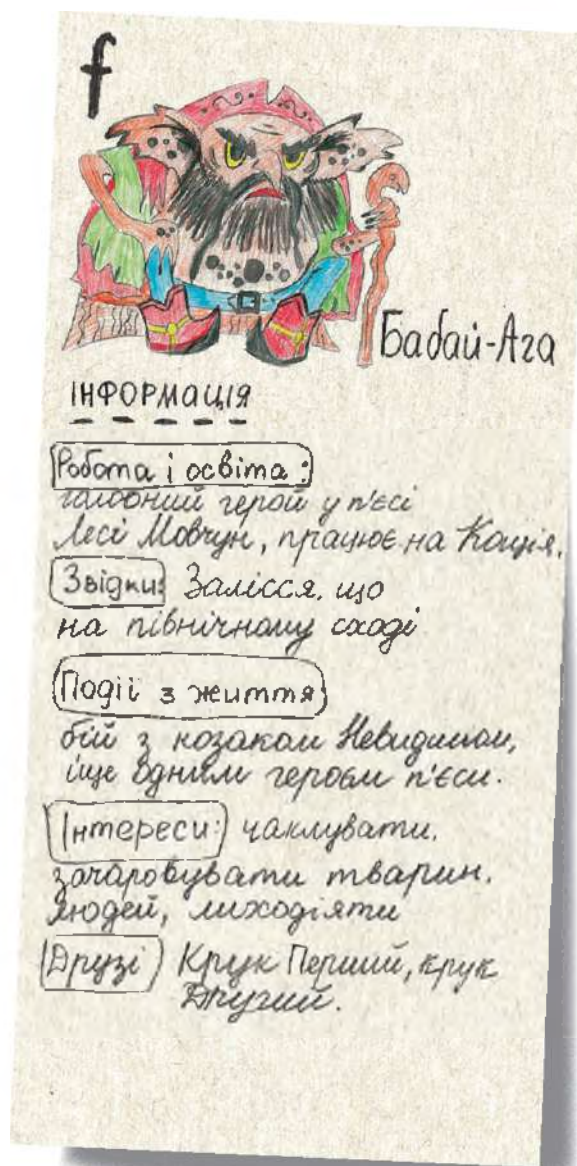 f
Бабай-Ага
ІНФОРМАЦІЯ
Робота і освіта:
головний герой у п'єсі
Лесі Мовчун, працює на Кощія.
Звідки: Залісся, що
на північному сході
Події з життя:
бій з козаком Невидимом,
іще одним героєм п'єси.
Інтереси: чаклувати,
зачаровувати тварин.
людей, лиходіяти
Друзі Крук Перший, крук
Другий.